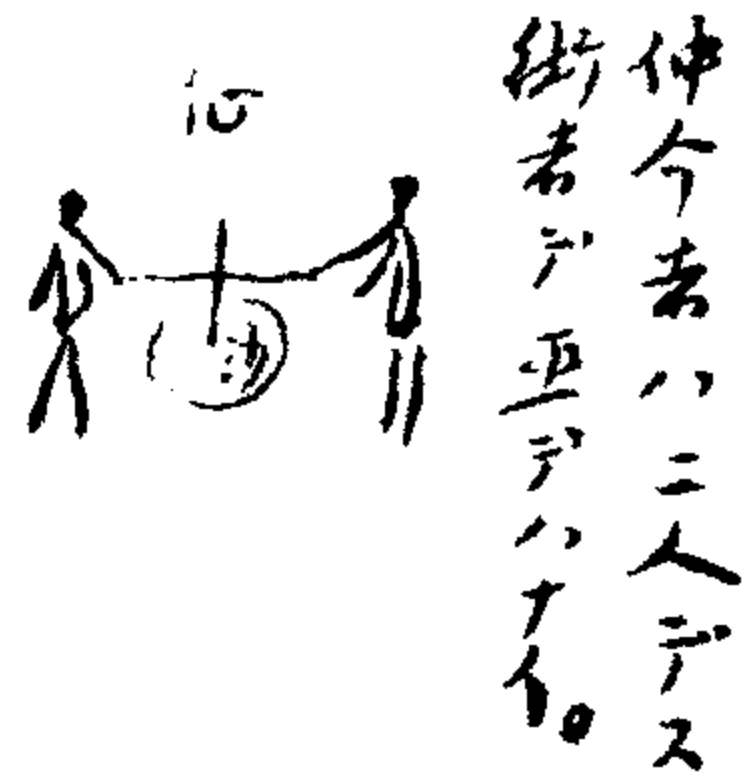 仲介者ハ二人デス
術者デ巫デハナイ。
沙